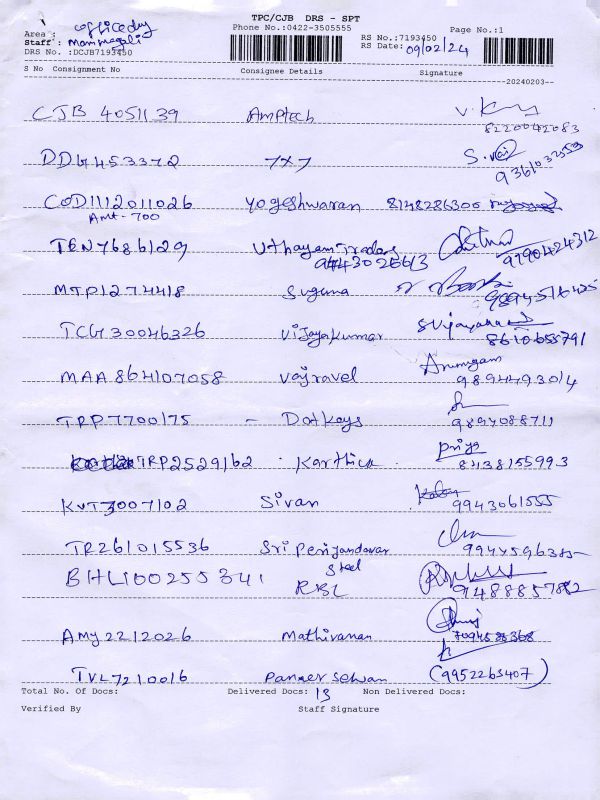 TPC/CJB DRS - SPT
Phone No.:0422-3505555
Page No.:1
Area :
Staff :
DRS No. :DCJB7193450
RS No.:7193450
RS Date: 09/02/24
S No Consignment No Consignee Details Signature
20240203
CJB 4051139 Amptech
8220042083
DDG453372 7x7
9361032553
COD1112011026 Yogeshwaran 8148286300
Amt-700
TEN7686129 Uthayam Trading
9443026613 9790424312
MTP1274418 Suguna
TCG30046326 Vijayakumar
8610655791
MAA864107058 Vajravel Arumugam
9894493014
TRP7700175 - Dotkeys 9894088711
TRP2529162 Karthica Priya
8438155993
KVT3007102 Sivan 9943061555
TR261015536 Sri Periyandavar
Steel
BHL100255341 RBL 9488857882
AMY2212026 Mathivanan
TVL7210016 Panneer Selvan (9952263407)
Total No. Of Docs: Delivered Docs: 13 Non Delivered Docs:
Verified By Staff Signature